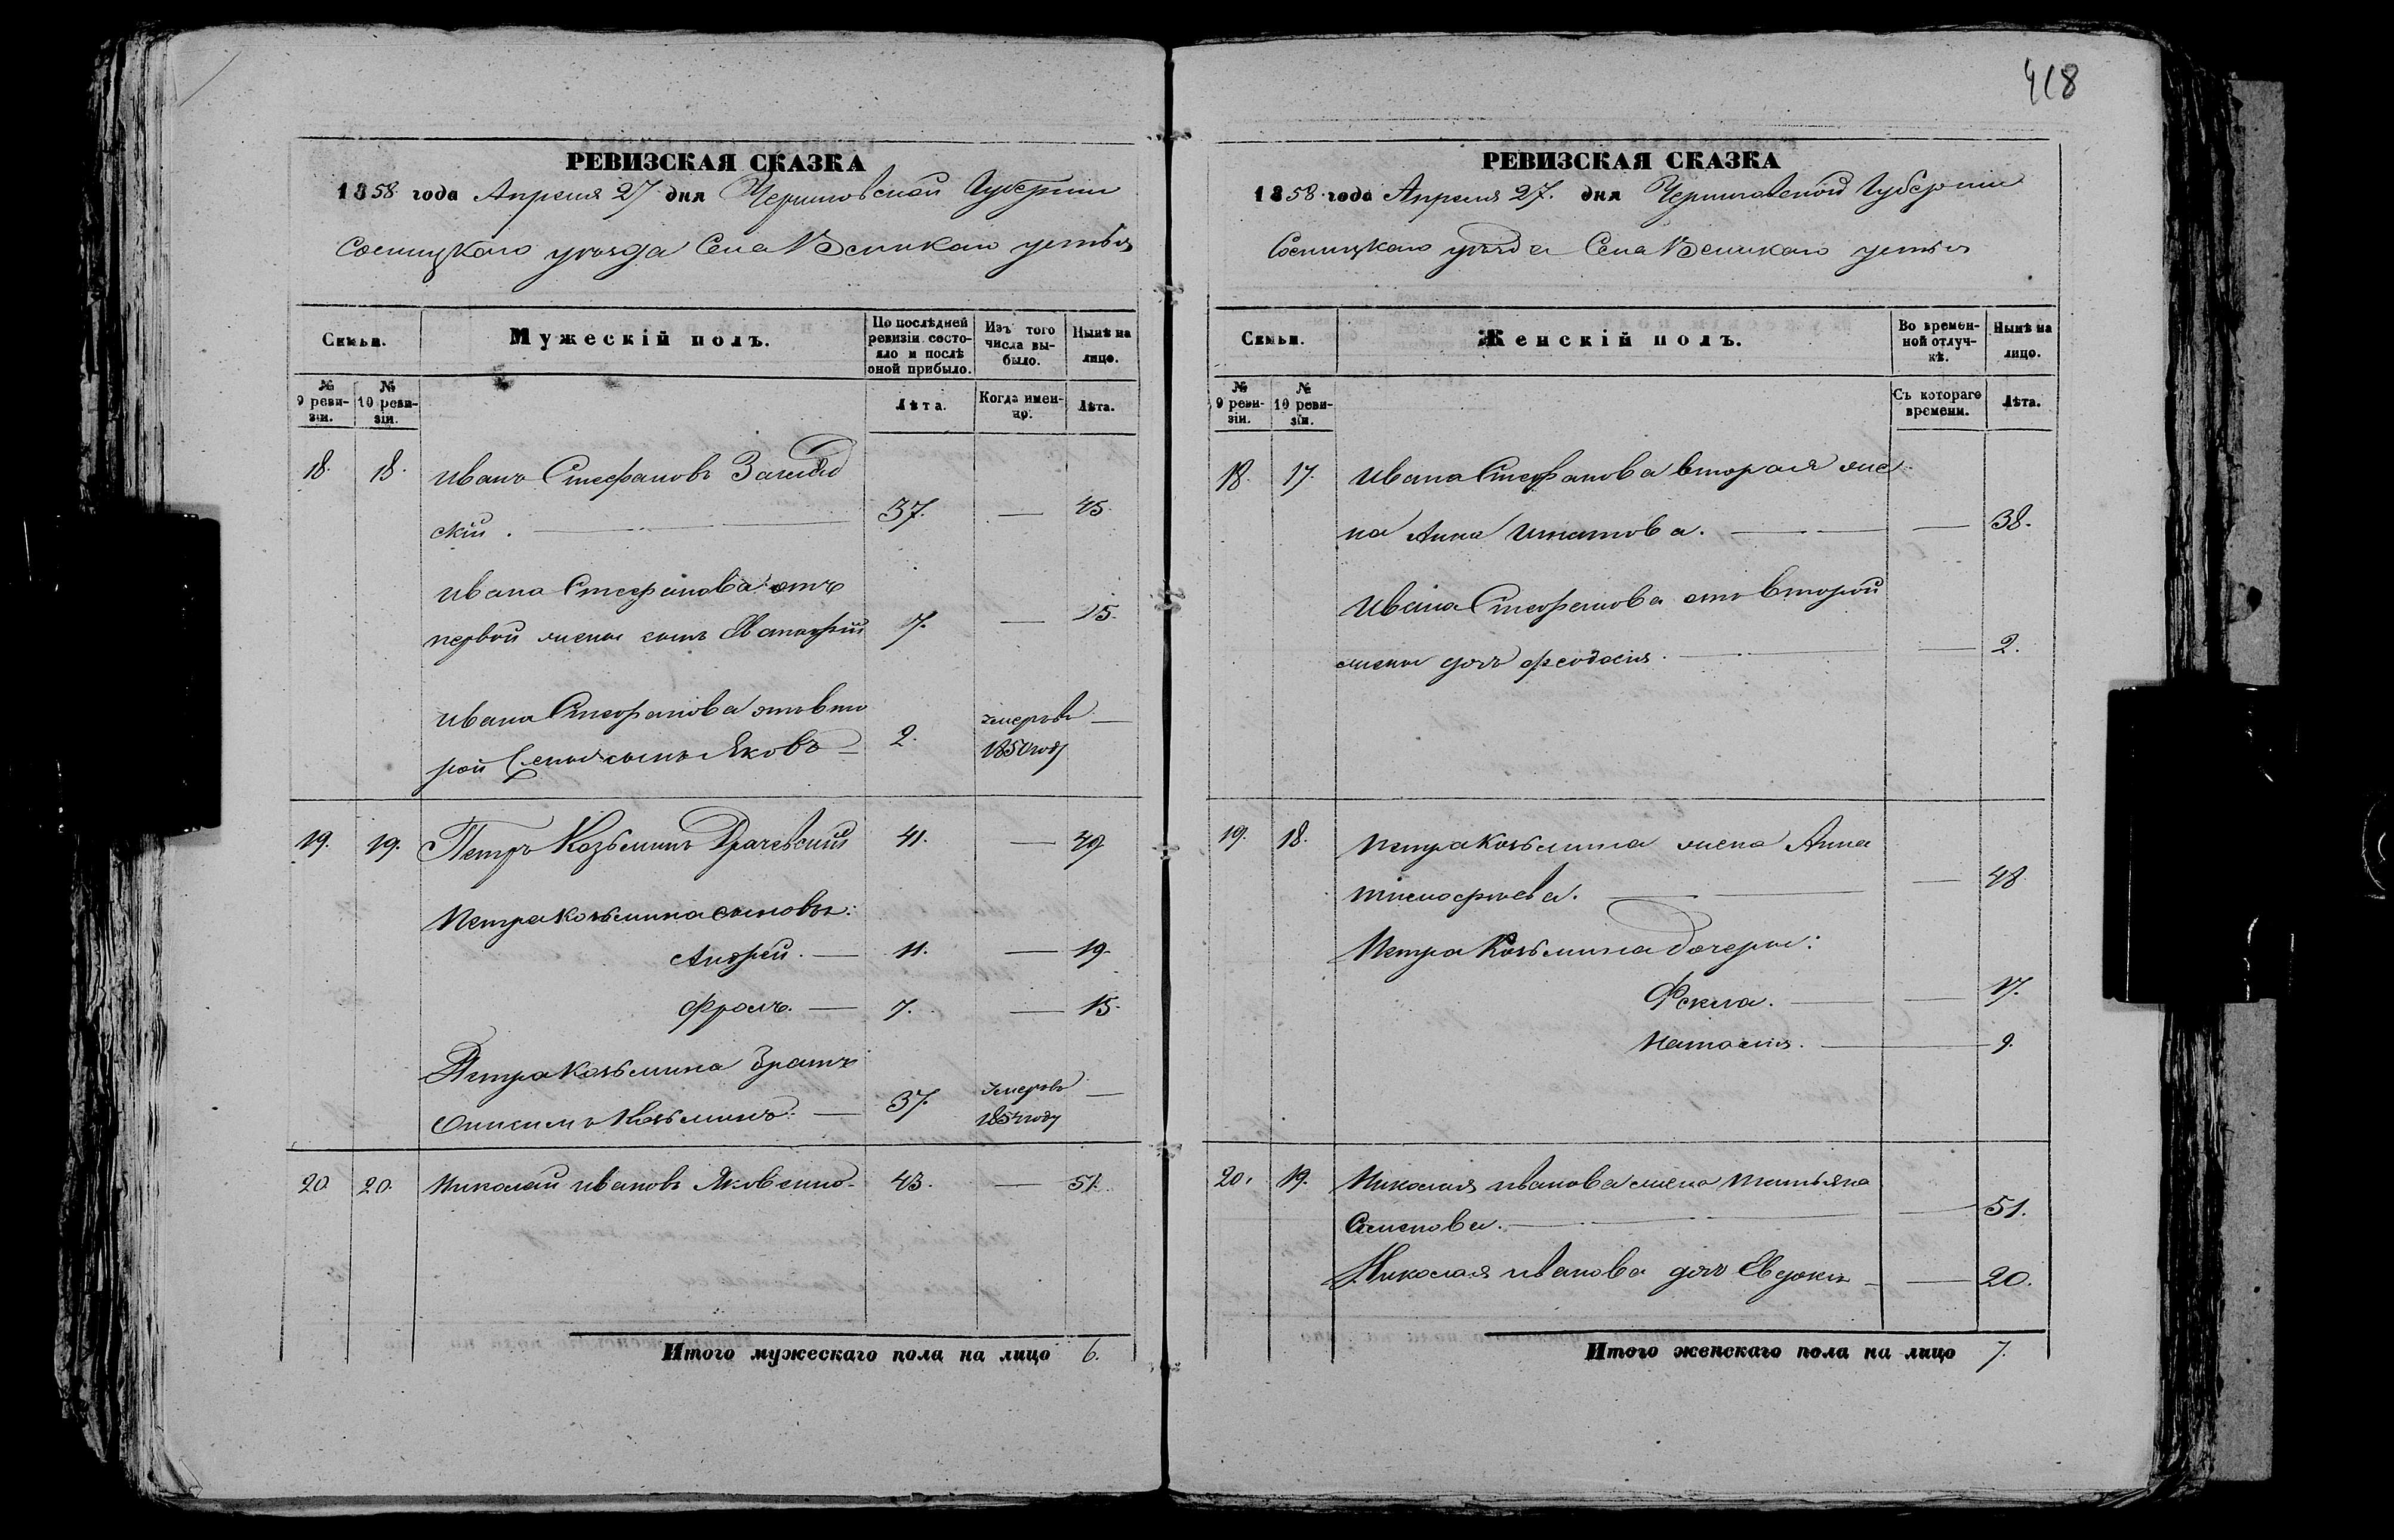 418
РЕВИЗСКАЯ СКАЗКА
1858 года Апреля 27 дня Черниговской Губернии
Сосницкаго уѣзда Села Великаго устья
Семьи.
Мужескій полъ.
По послѣдней ревизіи состояло и послѣ оной прибыло.
Изъ того числа выбыло.
Нынѣ на лицо.
№ 9 ревизіи.
№ 10 ревизіи.
Лѣта.
Когда именно.
Лѣта.
18. 18. Иванъ Стефановъ
скій. — 37. — 45.
Ивана Стефанова отъ
первой жены сынъ 7. — 15.
Ивана Стефанова отъ вто
рой жены сынъ Яковъ — 2. умеръ въ —
1850 году
19. 19. Петръ Козьминъ Драчевскій 41. — 49
Петра Козьмина сыновья:
Андрей. — 11. — 19.
Фролъ. — 7. — 15.
Петра Козьмина братъ
Онисимъ Козьминъ. — 37. умеръ въ —
году
20. 20. Николай Ивановъ Яковенко. 43. — 51.
Итого мужескаго пола на лицо 6.
РЕВИЗСКАЯ СКАЗКА
1858 года Апреля 27. дня Черниговской Губернии
Сосницкаго уѣзда Села Великаго устья
Семьи.
Женскій полъ.
Во временной отлучкѣ.
Нынѣ на лицо.
№ 9 ревизіи.
№ 10 ревизіи.
Съ котораго времени.
Лѣта.
18. 17. Ивана Стефанова вторая же
на Анна Игнатова. — — 38.
Ивана Стефанова отъ второй
жены дочь Феодосія. — — 2.
19. 18. Петра Козьмина жена Анна
Тимофѣева. — — 48
Петра Козьмина дочери:
Фекла. — — 17.
Настасія. — 9.
20. 19. Николая Иванова жена Татьяна
Семенова. — — 51.
Николая Иванова дочь Евдокія — — 20.
Итого женскаго пола на лицо 7.